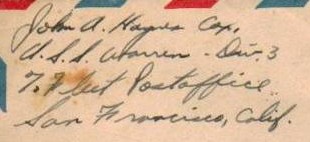 John A. Hayes Cox.
U.S.S. Warren - Div. 3
% Fleet Postoffice
San Francisco, Calif.